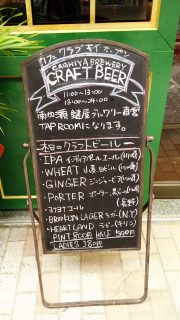 カフェ クラブキイ オープン
BAGHIYA BREWERY
CRAFT BEER
11:00-18:00
18:00-24:00
鍵屋ブルワリー直営
TAP ROOMになります。
本日のクラフトビール
・IPA インディアペールエール
・WHEAT 小麦ビール
・GINGER ジンジャービア
・PORTER ポーター 黒ビール
(長野)
・BROOKLYN LAGER ラガー(N.Y)
・HEARTLAND ラガー(キリン)
PINT 800円 HALF 500円
LADIES 380円